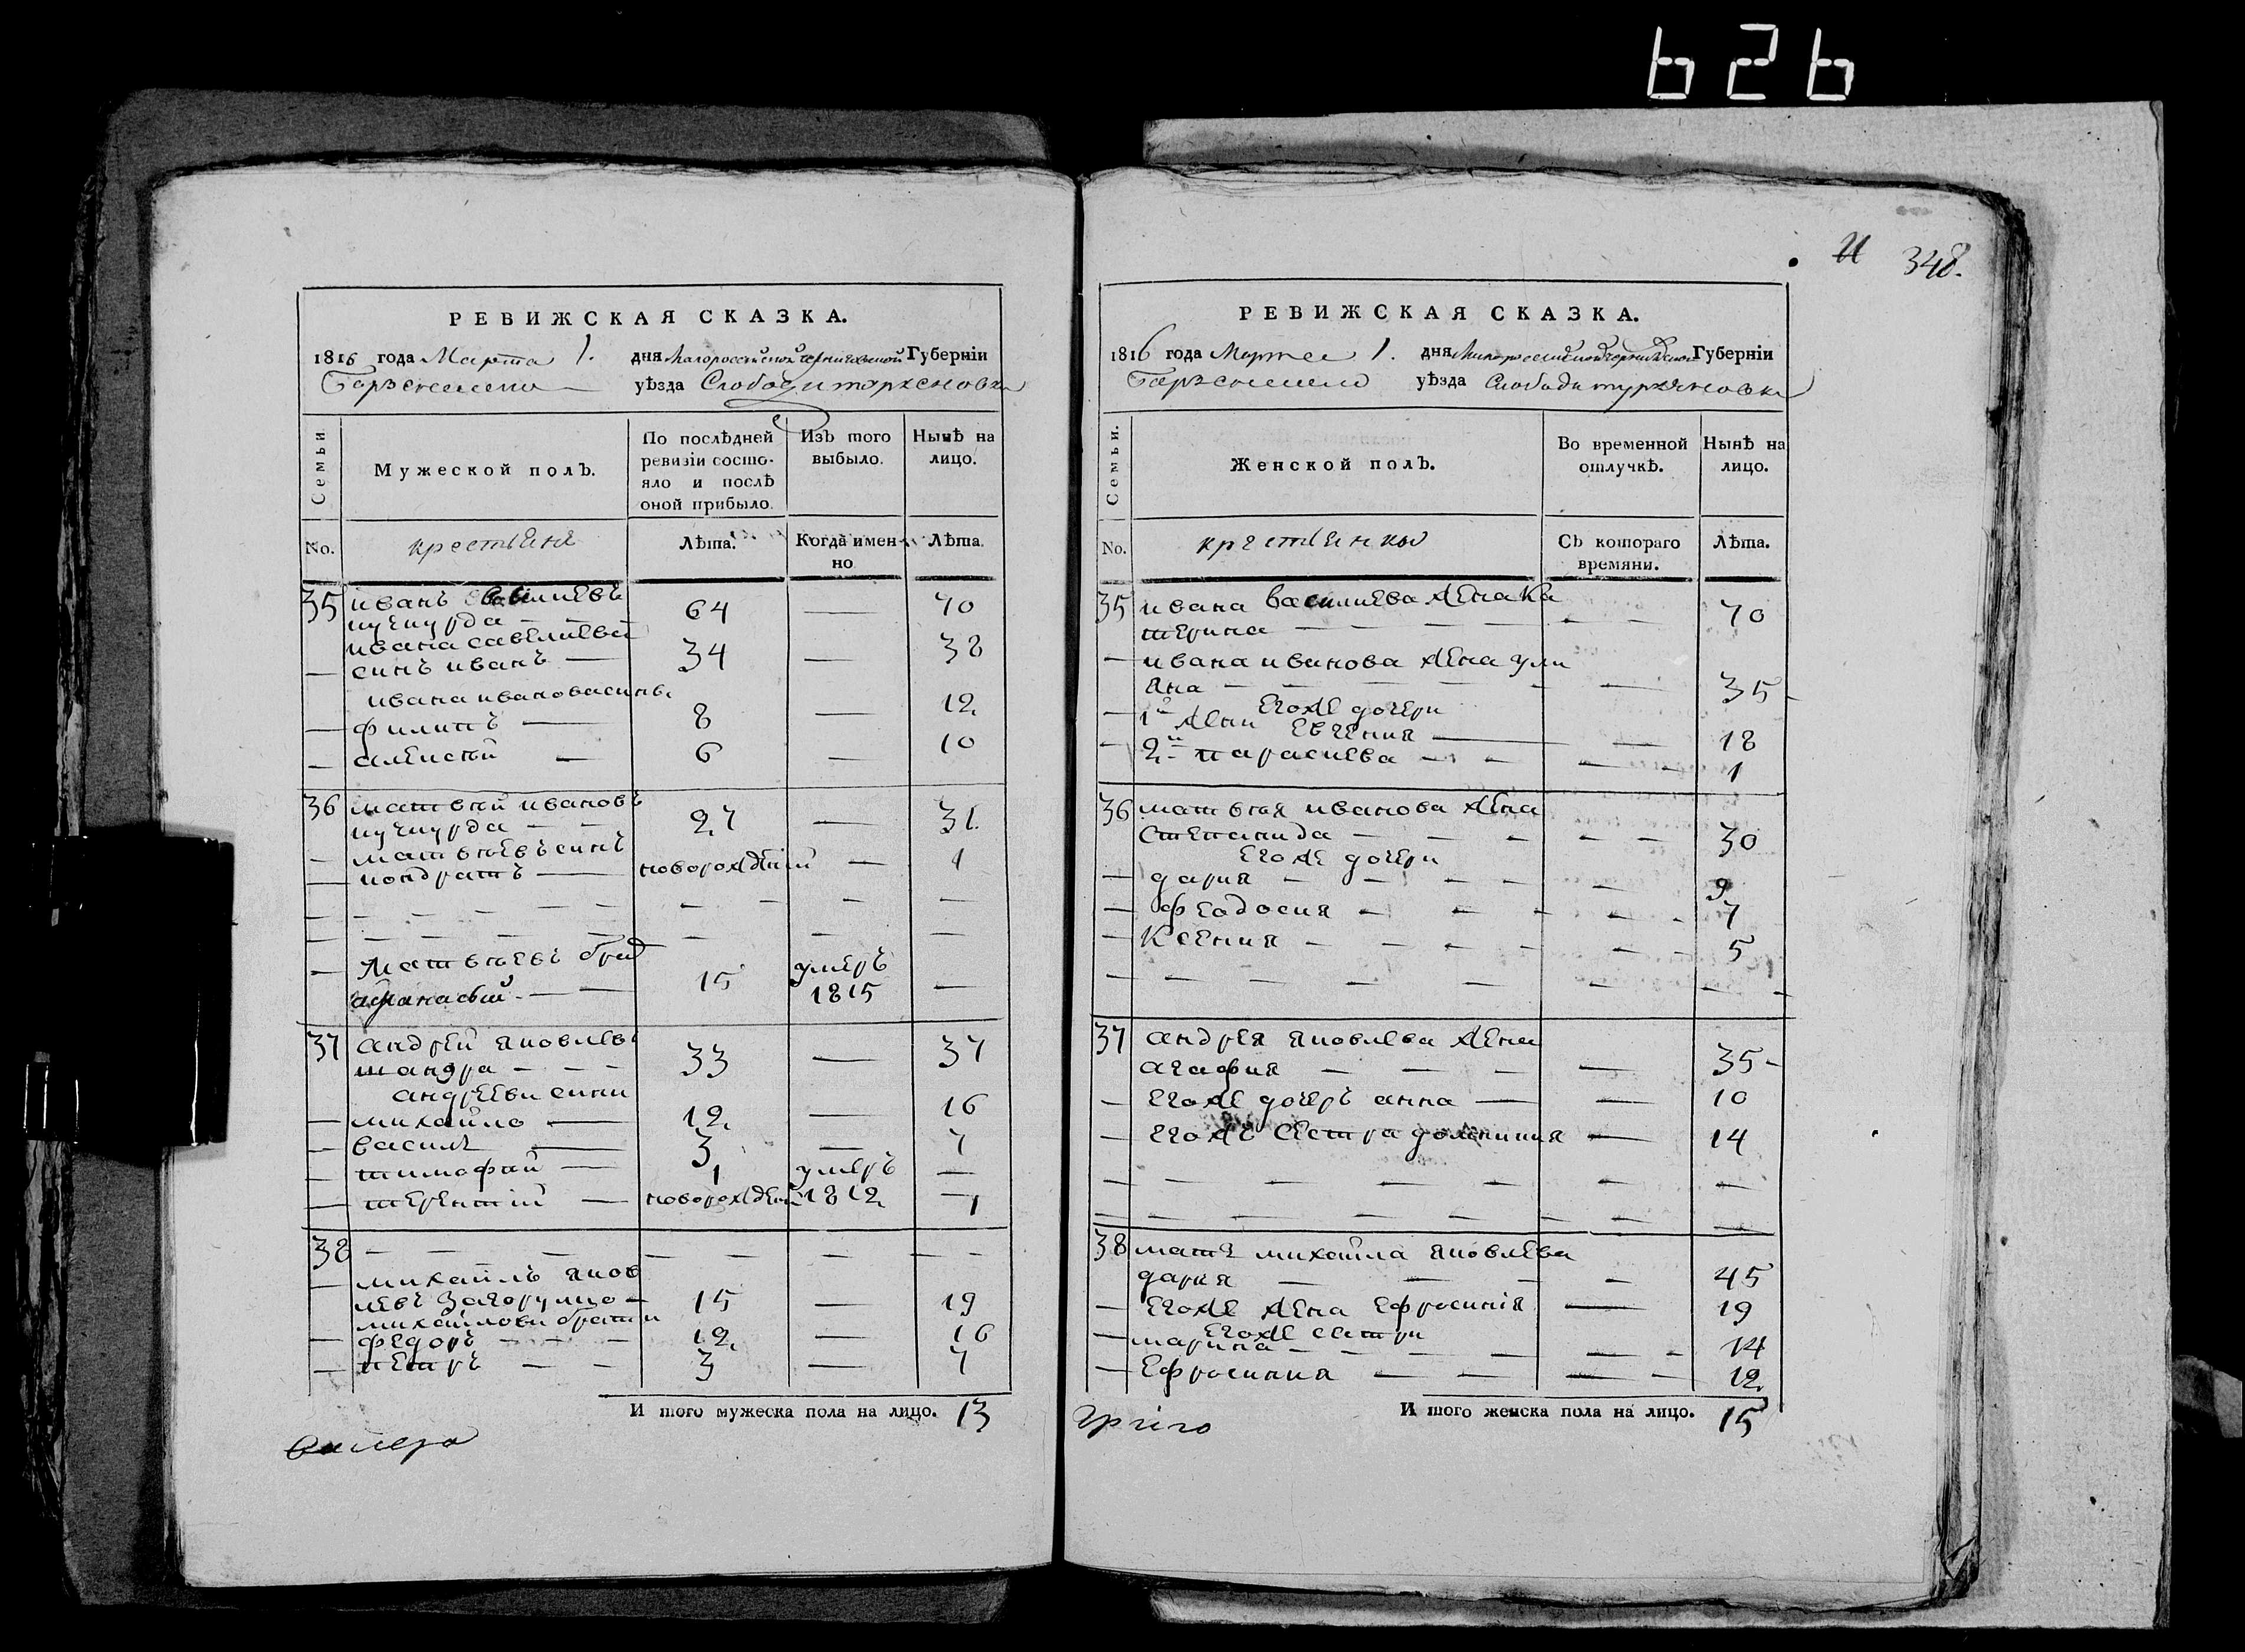 626
РЕВИЖСКАЯ СКАЗКА.
1816 года Марта 1. дня Малоросси́йской черниговской Губерніи
уѣзда Слободи
Семьи
Мужеской полъ.
По послѣдней ревизіи состояло и послѣ оной прибыло.
Изъ того выбыло.
Нынѣ на лицо.
No.
крестьяня
Лѣта.
Когда именно
Лѣта.
35 иванъ
64 — 70
ивана савелиева
— синъ иванъ — 34 — 38
ивана иванова синь
— филипъ — 8 — 12
— алексѣй — 6 — 10
36 матвѣй ивановъ
27 — 31.
— матвѣевъ синъ
— кондратъ — новорожденій — 1
— матвѣевъ брат
афанасий — 15 умеръ 1815 —
37 андрей яковлевъ
шандра — 33 — 37
андрееви сини
— михайло — 12 — 16
— василь — 3 — 7
— тимофий — 1 умеръ 1812 —
— терентій — новорожден — 1
38 — — —
— михайлъ яков
левъ 15 — 19
михайлови брати
— федоръ — 12 — 16
— петръ — 3 — 7
И того мужеска пола на лицо. 13
348.
РЕВИЖСКАЯ СКАЗКА.
1816 года Марта 1. дня Малороссийской черниговской Губерніи
уѣзда Слободи
Семьи.
Женской полъ.
Во временной отлучкѣ.
Нынѣ на лицо.
No.
крестьянки
Съ котораго времяни.
Лѣта.
35 ивана василиева жена ка
терина — 70
— ивана иванова жена ули
яна — 35
— егоже дочери
1й жени евгения — 18
— 2й парасцева — 1
36 матвѣя иванова жена
степанида — 30
егоже дочери
— дария — 9
— феодосия — 7
— Ксения — 5
37 андрея яковлева жена
агафия — 35
— егоже дочеръ анна — 10
— егожъ сестра домникия — 14
38 мать михайла яковлева
дария — 45
— егоже жена ефросинія — 19
— егоже сестри
марина — 14
— Ефросиния — 12
И того женска пола на лицо. 15